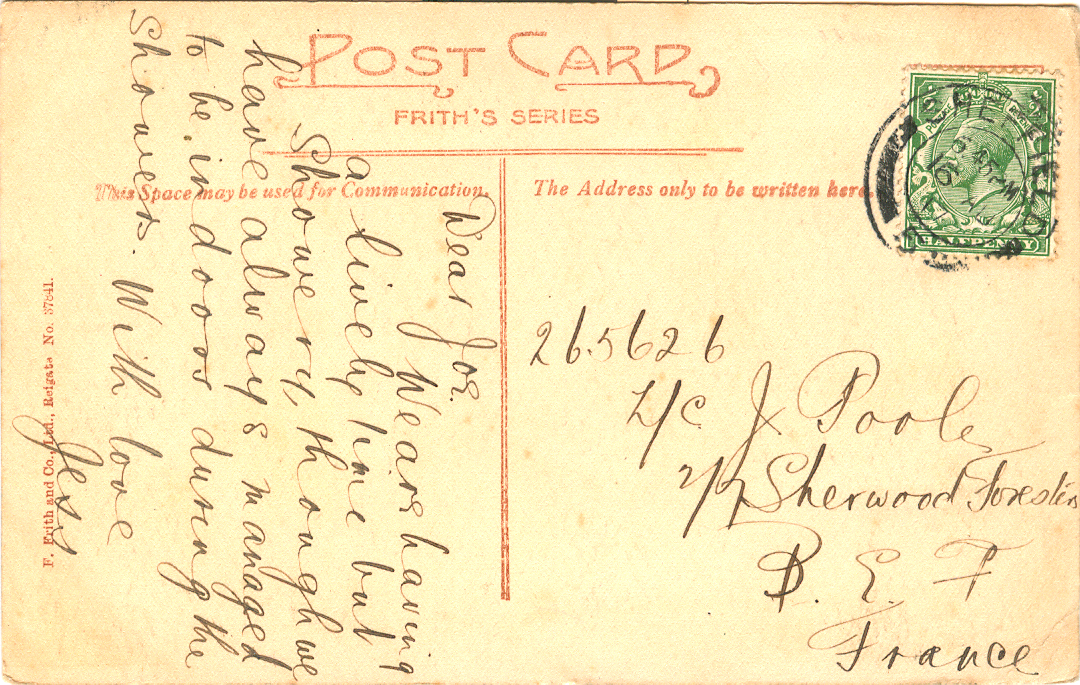 POST CARD
FRITH'S SERIES
This Space may be used for Communication.
The Address only to be written here.
HALFPENNY
F. Frith and Co., Ltd., Reigate No. 37841.
Dear Joe.
We are having
a lively time but
Showery, though we
have always managed
to be in doors during the
showers. With love
Jess
265626
L/c J Poole
2/7 Sherwood Foresters
B. E. F
France